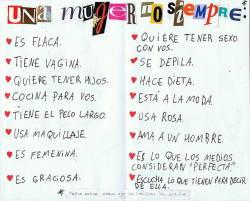 UNA MUGER NO SIEMPRE:
ES FLACA.
TIENE VAGINA.
QUIERE TENER HIJOS.
COCINA PARA VOS.
TIENE EL PELO LARGO.
USA MAQUILLAJE.
ES FEMENINA.
ES GRACIOSA.
QUIERE TENER SEXO
CON VOS.
SE DEPILA.
HACE DIETA.
ESTÁ A LA MODA.
USA ROSA.
AMA A UN HOMBRE.
ES LO QUE LOS MEDIOS
CONSIDERAN "PERFECTA".
ESCUCHA LO QUE TIENEN PARA DECIR
DE ELLA.